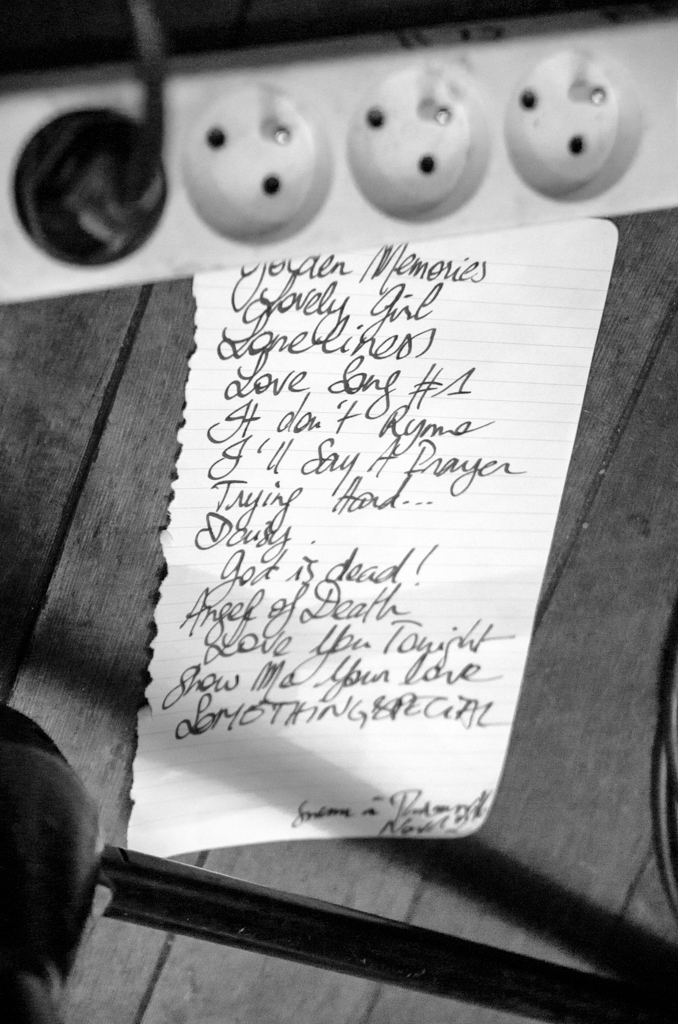 Golden Memories
Lovely Girl
Loneliness
Love Song #1
It don't Ryme
I'll Say A Prayer
Trying Hard...
Daisy.
God is dead!
Angel of Death
Love You Tonight
Show Me Your love
SOMETHING SPECIAL